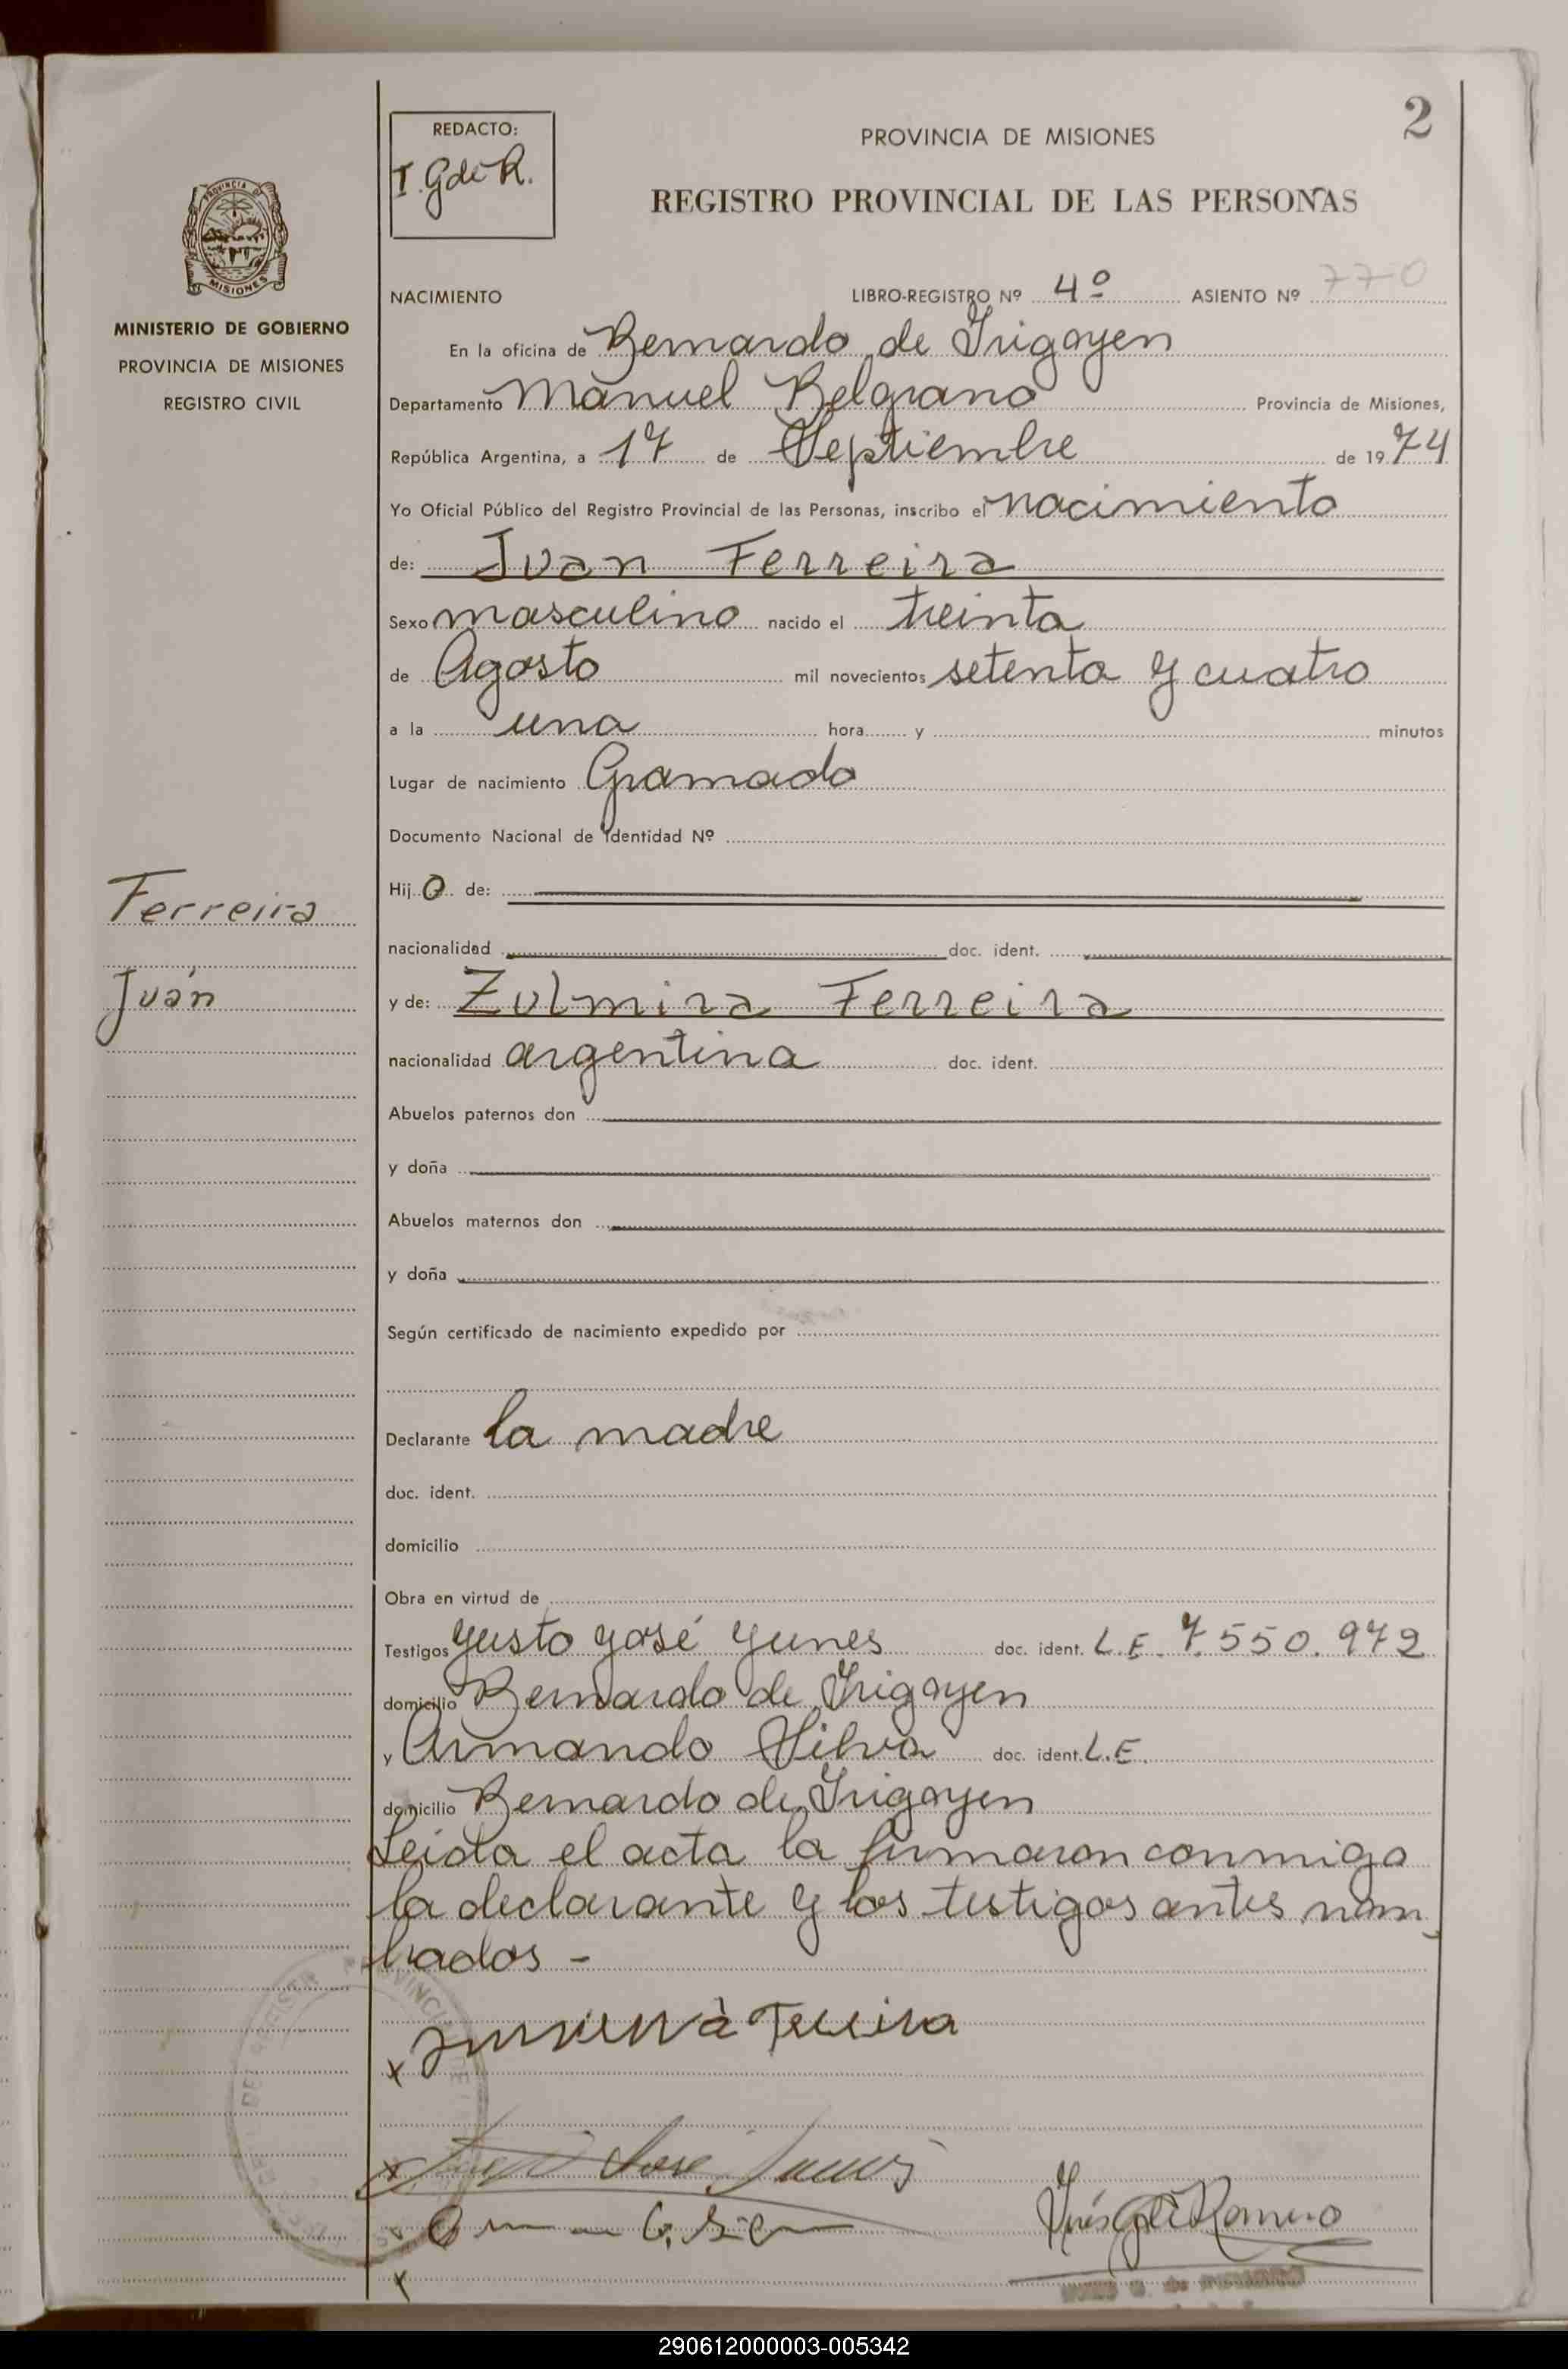 2
REDACTO:
I. G de R.
PROVINCIA DE MISIONES
REGISTRO PROVINCIAL DE LAS PERSONAS
PROVINCIA DE
MISIONES
MINISTERIO DE GOBIERNO
PROVINCIA DE MISIONES
REGISTRO CIVIL
NACIMIENTO LIBRO-REGISTRO Nº 4º ASIENTO Nº 770
En la oficina de Bernardo de Irigoyen
Departamento Manuel Belgrano Provincia de Misiones,
República Argentina, a 17 de Septiembre de 1974
Yo Oficial Público del Registro Provincial de las Personas, inscribo el nacimiento
de: Juan Ferreira
Sexo masculino nacido el treinta
de Agosto mil novecientos setenta y cuatro
a la una hora y minutos
Lugar de nacimiento Gramado
Documento Nacional de Identidad Nº
Hijo de:
Ferreira
nacionalidad doc. ident.
Juán
y de: Zulmira Ferreira
nacionalidad argentina doc. ident.
Abuelos paternos don
y doña
Abuelos maternos don
y doña
Según certificado de nacimiento expedido por
Declarante la madre
doc. ident.
domicilio
Obra en virtud de
Testigos Justo José Yunes doc. ident. L.E. 7.550.972
domicilio Bernardo de Irigoyen
y Armando Silva doc. ident. L.E.
domicilio Bernardo de Irigoyen
Leida el acta la firmaron conmigo
la declarante y los testigos antes nom
brados -
x
x José Yunes
Inés G de Romero
x
290612000003-005342